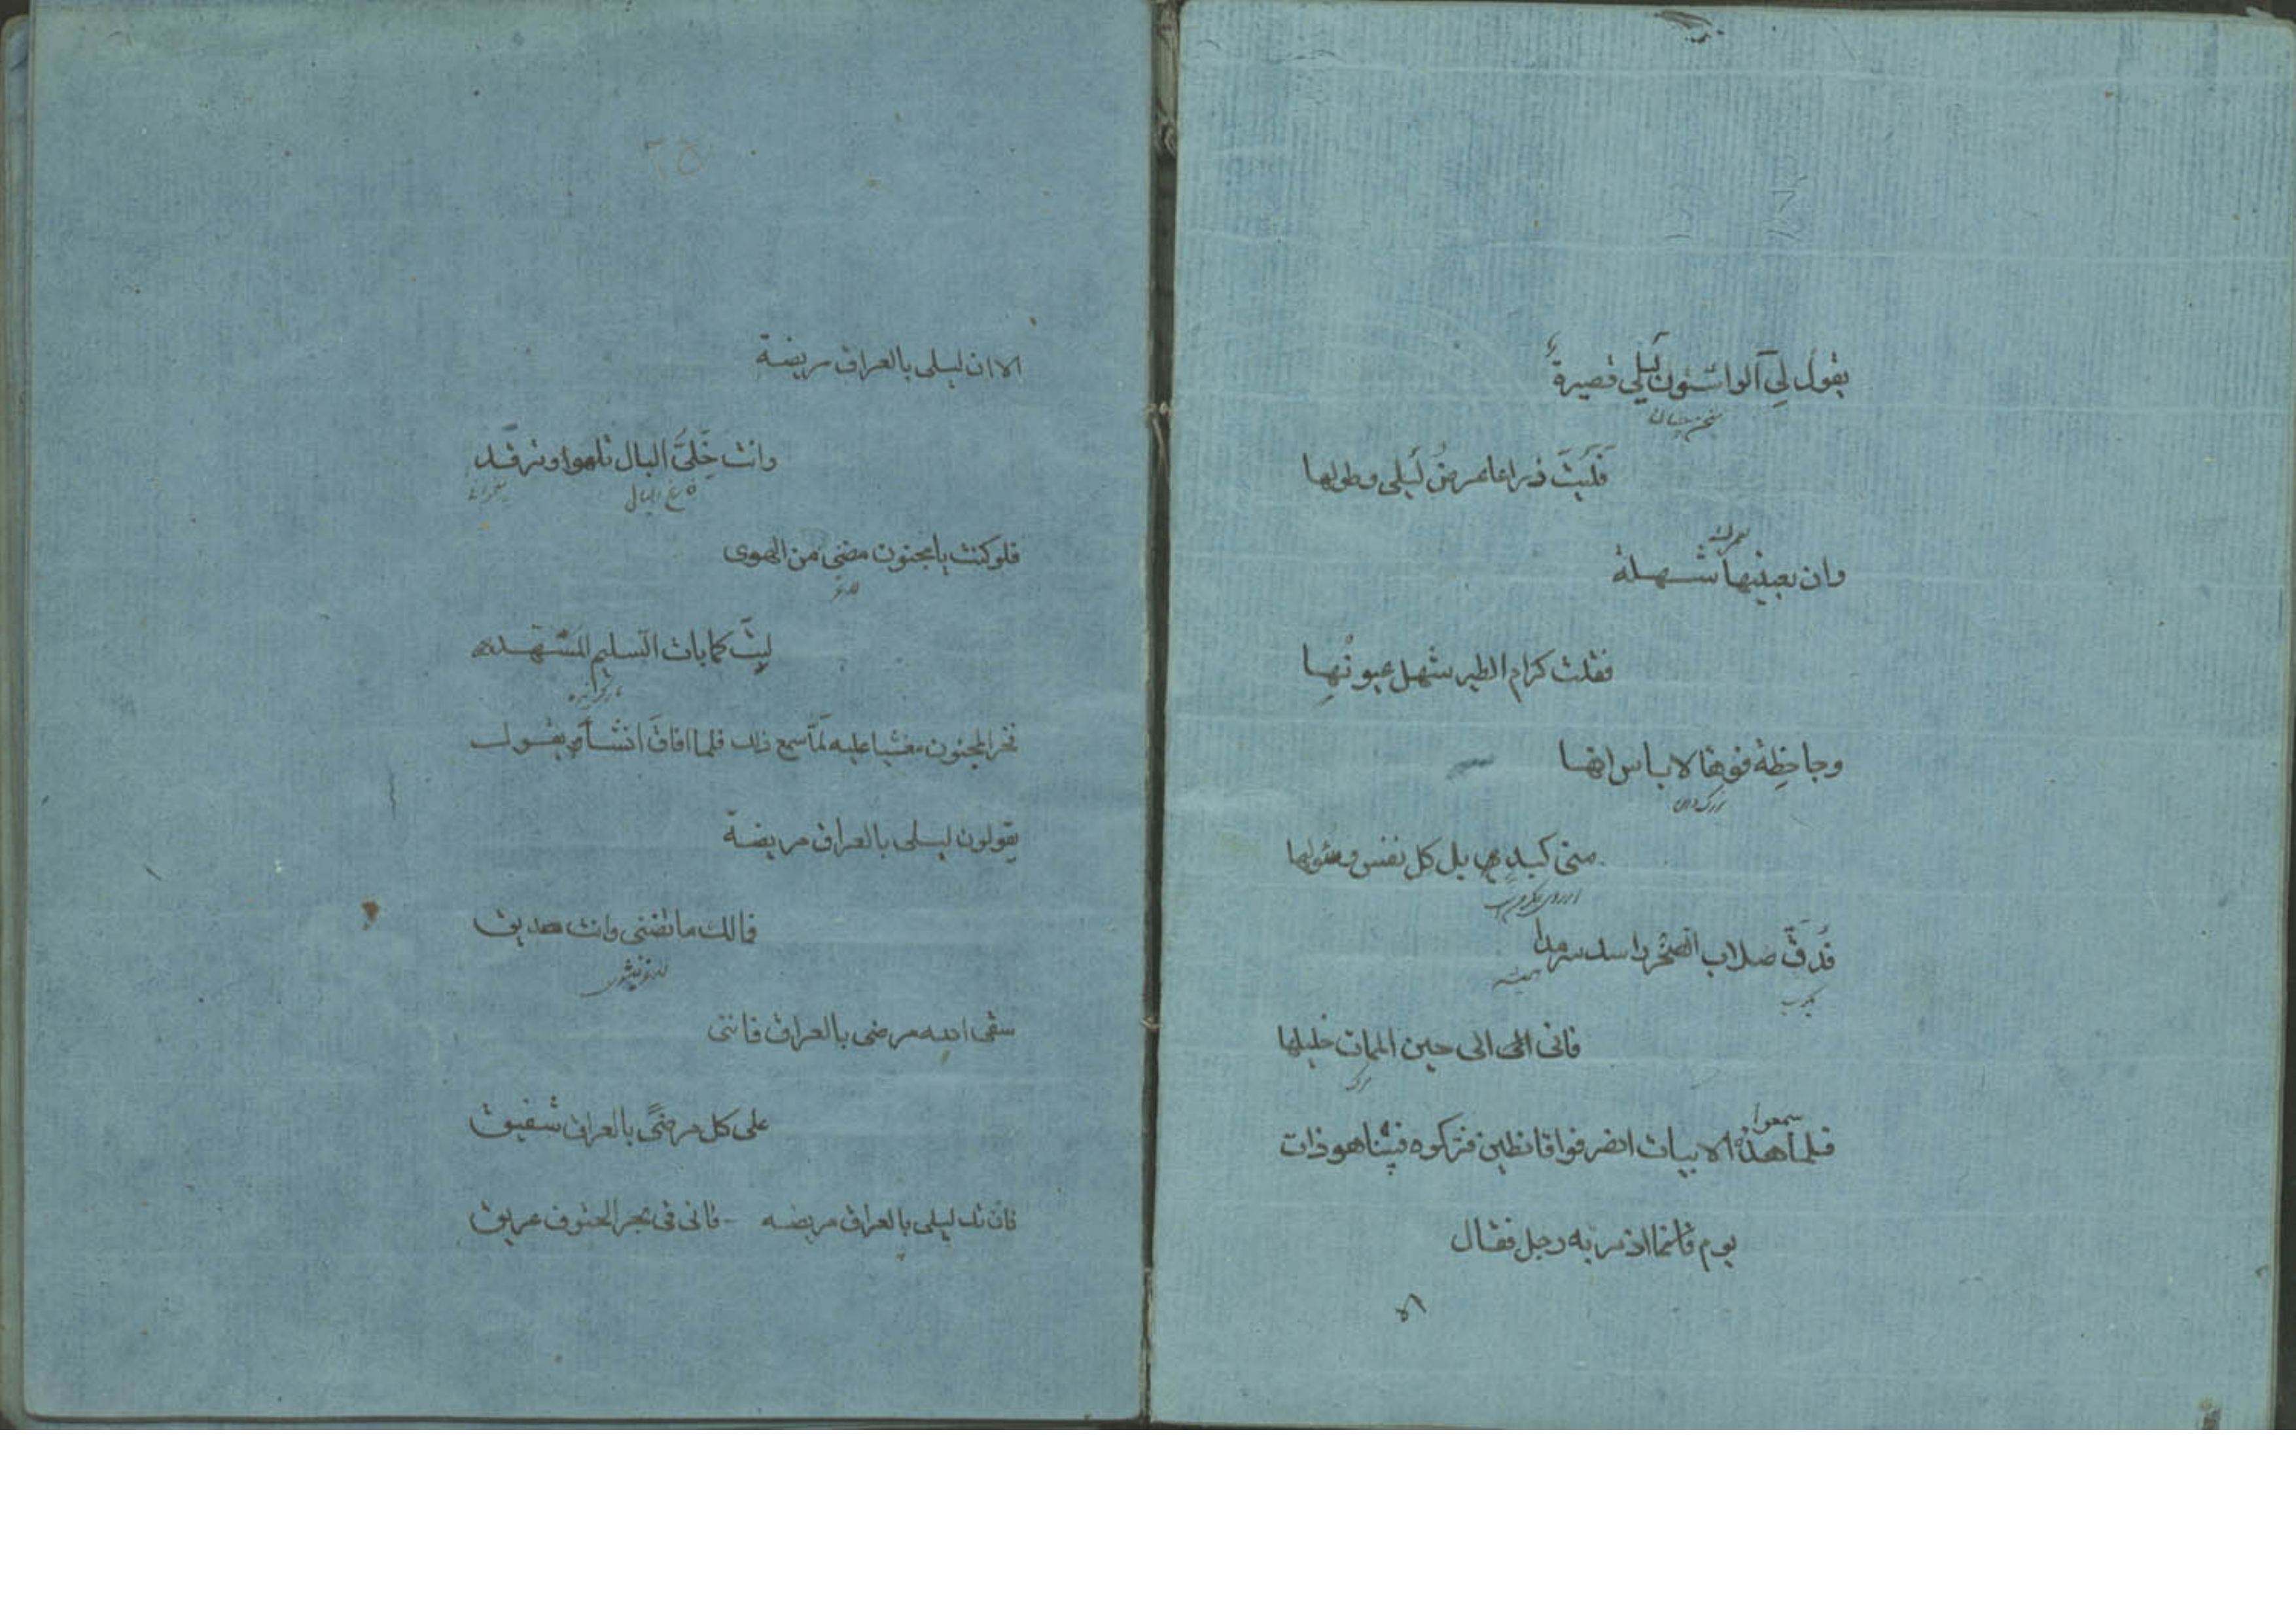 يقول لِي الواشون لَيلي قصيرةٌ
سخن چینان
فَلَيتَ ذراعا عرضُ لَيلى وطولها
وان بعينيها شهلة
فقلت كرام الطير شهل عيونُها
وجاحِظة فوها لا باس انها
منى كبدى بل كل نفس وسؤلها
فَدَقَّ صلاب الصخر راسك سرمدا
همیشه
فانى الى حين الممات خليلها
مرک
سمعوا
فلما هذه الابيات انصرفوا قانطين فتركوه فبينا هو ذات
يوم قائما اذ مر به رجل فقال
الا
٢٥
الا ان ليلى بالعراق مريضة
وانت خَلِىَّ البال تلهوا وترقد
فارغ البال
فلو كنت يا مجنون مضنى من الهوى
لبِتَّ كما بات السليم المسَهَّد
فخر المجنون مغشيا عليه لَمّا سمع ذلك فلما افاقَ انشأ يقول
يقولون ليلى بالعراق مريضة
فمالك ما تضنى وانت صديق
سقى الله مرضى بالعراق فاننى
على كل مرضىً بالعراق شفيق
فان تك ليلى بالعراق مريضه - فانى فى بحر الحتوف غريق